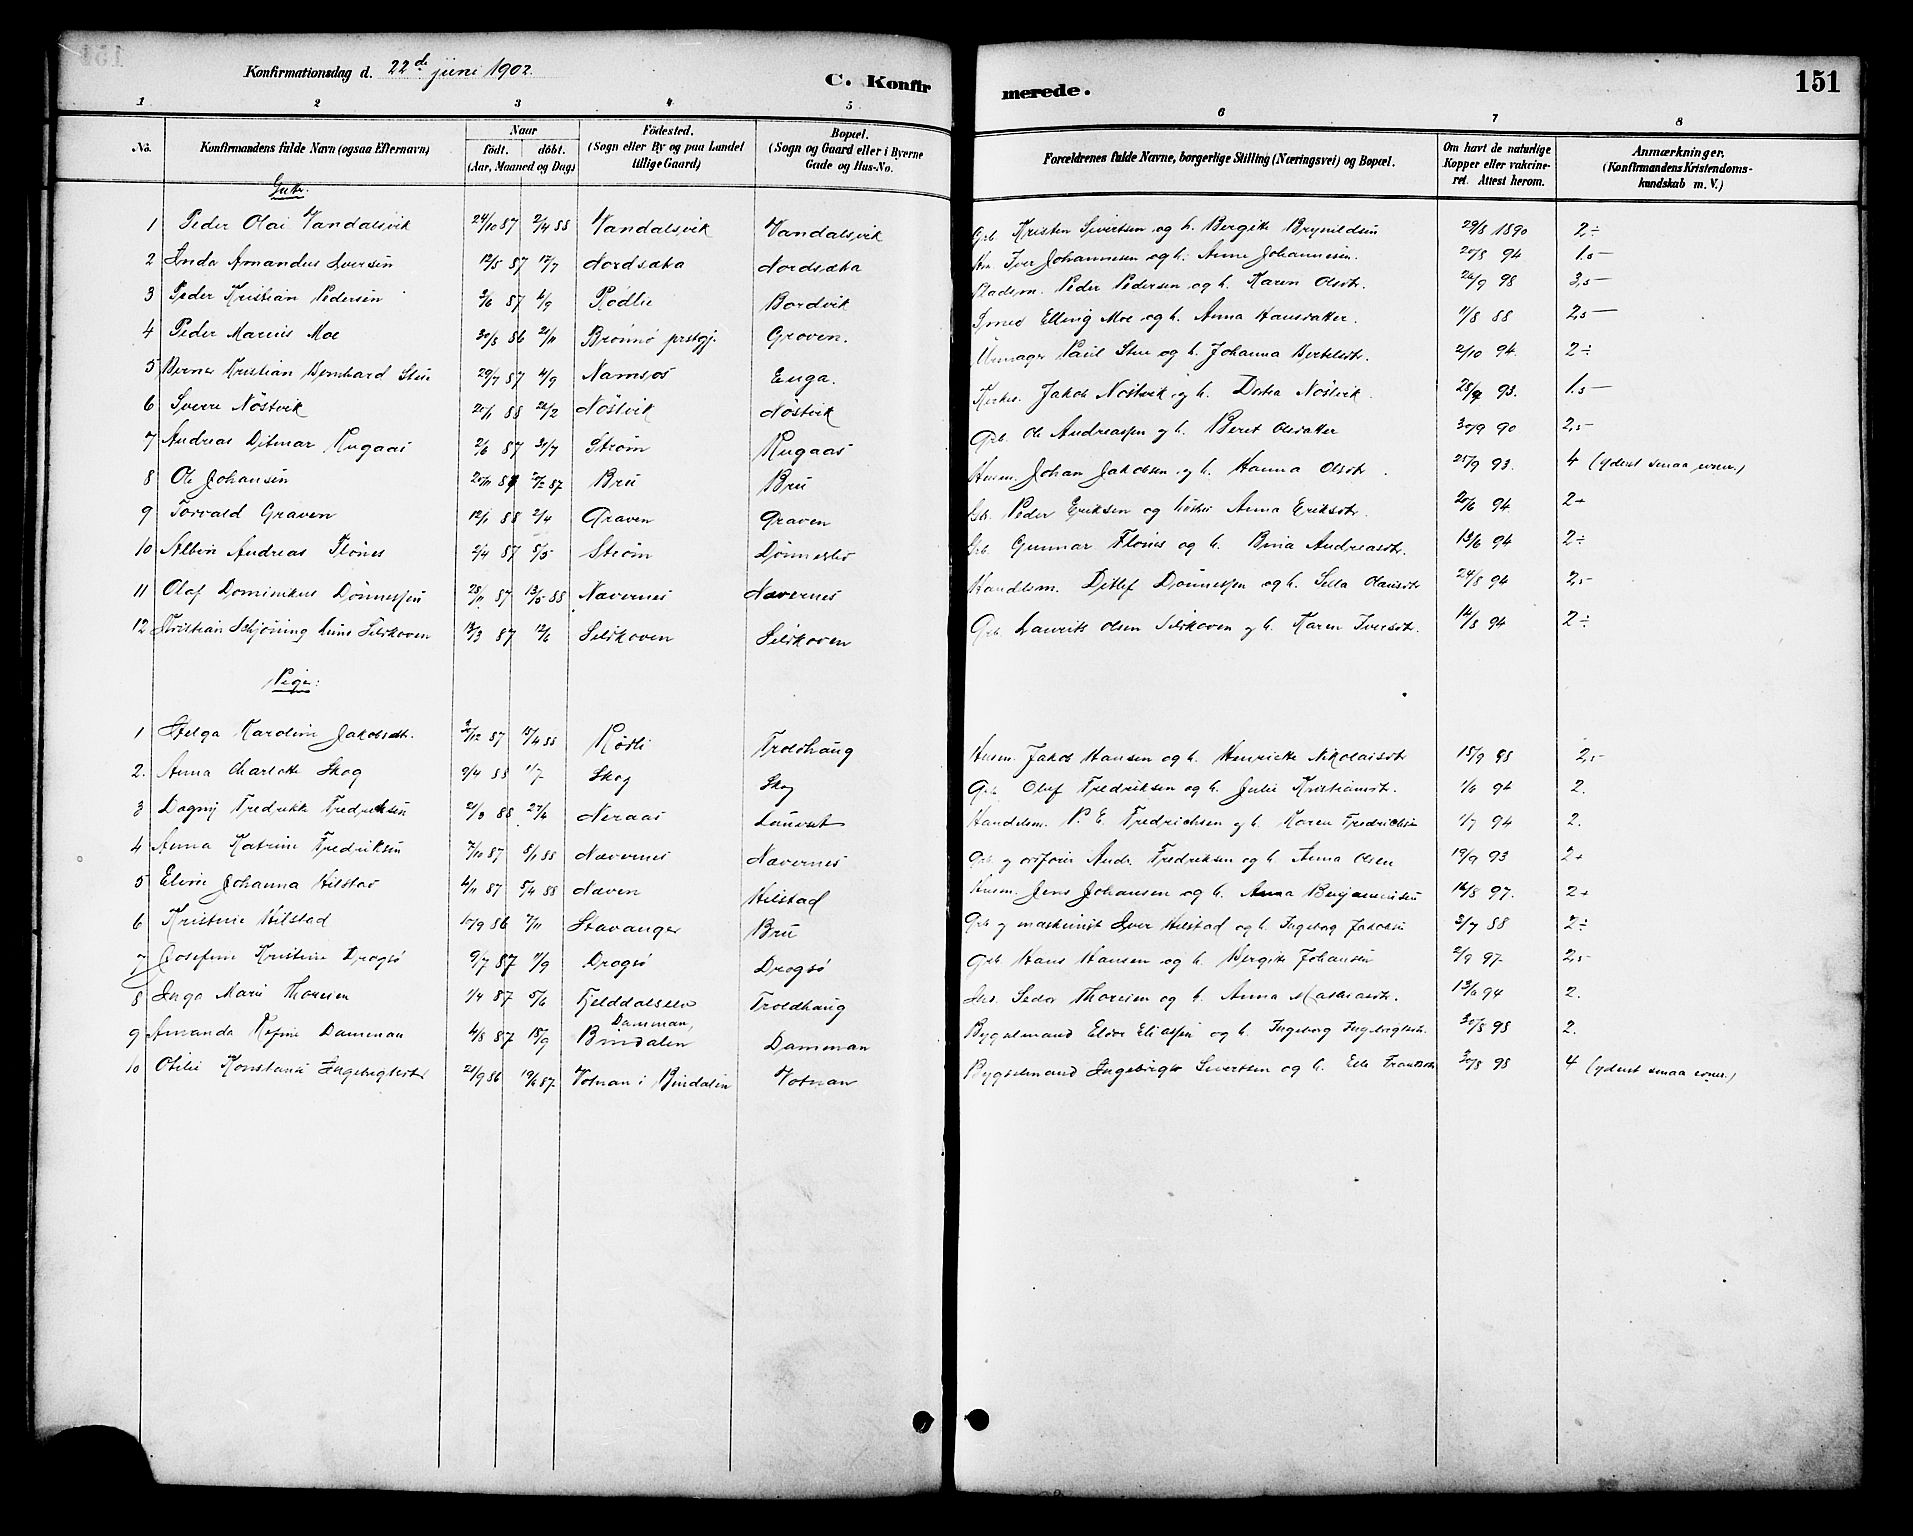 151
Konfirmationsdag d. 22de juni 1902.
C. Konfir
merede.
1 2 3 4 5 6 7 8
No. Konfirmandens fulde Navn (ogsaa Efternavn) Naar födt. döbt. (Aar, Maaned og Dag) Födested. (Sogn eller By og paa Landet tillige Gaard) Bopæl. (Sogn og Gaard eller i Byerne Gade og Hus-No. Forældrenes fulde Navne, borgerlige Stilling (Næringsvei) og Bopæl. Om havt de naturlige Kopper eller vakcineret. Attest herom. Anmærkninger. (Konfirmandens Kristendomskundskab m. V.)
Gutter.
1 Peder Olai Vandalsvik 24/10 87 2/4 88 Vandalsvik Vandalsvik Grb. Kristen Sivertsen og h. Bergitte Brynildsen 29/8 1890 2÷
2 Amandus Iversen 12/5 87 17/7 Nordsæta Nordsæta Iver Johannesen og h. Anne Johannesen. 25/8 94 1.5-
3 Peder Kristian Pedersen 3/6 87 4/9 Rödlie Bordvik Pladsm. Peder Pedersen og h. Karen Olsdtr. 26/9 98 3,5-
4 Peder Marius Moe 30/8 86 21/11 Brönnö prstgj. Graven. Elling Moe og h. Anna Hansdatter. 11/8 88 2,5-
5 Kristian Bernhard Stue 29/7 87 4/9 Namsos Enga. Urmager Paul Stue og h. Johanna Bertelsdtr. 2/10 94. 2÷
6 Sverre Nöstvik 20/1 88 26/2 Nöstvik Nöstvik Jakob Nöstvik og h. Nöstvik 28/9 93. 1.5-
7 Andreas Ditmar Rugaas 2/6 87 31/7 Ström Rugaas Grb. Ole Andreassen og h. Beret Olsdatter 30/9 90 2,5-
8 Ole Johansen 87 Bru Bru Husm. Johan Jakobsen og h. Hanna Olsdtr. 25/9 93. 4 (yderst smaa evner.)
9 Torvald Graven 12/1 88 2/4 Graven Graven Gb. Peder Eriksen og hustru Anna Eriksdtr. 20/6 94. 2+
10 Albin Andreas Flönes 2/4 87 5/5 Ström Dönneslö Grb. Gunnar Flönes og h. Bina Andreasdtr. 13/6 94 2÷
11 Olaf Dominikus Dönnessen 28/11 87 13/5 88 Nævernes Nævernes Handlsm. Ditlef Dönnessen og h. Sella Olausdtr 24/8 94 2,5-
12 Kristian Skjöning Selskoven 13/3 87 12/6 Selskoven Selskoven Grb. Laurits Olsen Selskoven og h. Karen Iversdtr. 14/8 94 2÷
Piger:
1 Helga Karoline Jakobsdtr. 87 15/4 88 Rödli Troldhaug Husm. Jakob Hansen og h. Henriette Nikolaisdtr 15/9 98 2,5-
2. Anna Charlotte Skog 9/4 88 1/7 Skog Skog Grb. Oluf Fredriksen og h. Julie Kristiansdtr. 1/6 94 2.
3 Dagny Fredrikke Fredriksen 2/3 88 24/6 Neraas Handelsm. P. E. Fredrichsen og h. Karen Fredrichsen 1/7 94 2.
4 Anna Katrine Fredriksen 7/10 87 8/1 88 Nævernes Nævernes Grb. og Andr. Fredriksen og h. Anna Olsen 19/9 93 2+
5 Eline Johanna Hilstad 4/11 87 5/4 88 Næven Hilstad Husm. Jens Johansen og h. Anna Benjaminsen 16/8 97. 2+
6 Kristine Hilstad 17/9 86 7/11 Stavanger Bru Grb. og maskinist Iver Hilstad og h. Ingeborg Jakobsen 3/7 88 2÷
7 Josefine Kristine Drogsö 9/7 87 11/9 Drogsö Drogsö Grb. Hans Hansen og h. Bergitte Johansen 2/9 97. 2,5-
8 Inga Marie Thoresen 1/4 87 5/6 Fjelddalselv Troldhaug Peder Thoresen og h. Anna Mathiasdtr. 13/6 94 2.
9 Amanda Rafine Damman 4/8 87 18/9 Damman, Bindalen Damman Bygselmand Eldor Eliassen og h. Ingeborg Ingebrigtsdtr. 30/8 98 2.
10 Otilie Konstanse Ingebrigtsdtr 21/9 86 19/6 87. Votnan i Bindalen Votnan Bygselmand Ingebrigt Sivertsen og h. Frantsdtr 30/8 98 4 (yderst smaa evner.)